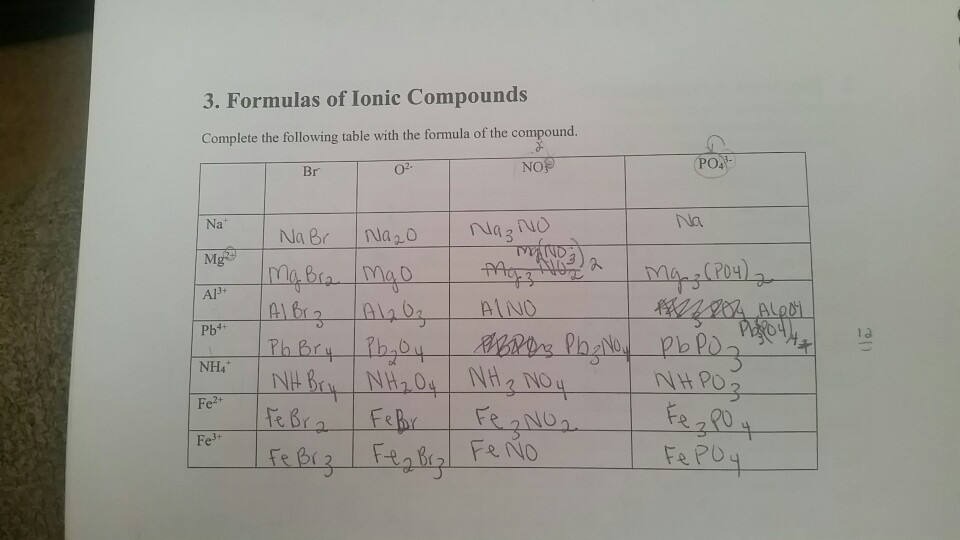 3. Formulas of Ionic Compounds
Complete the following table with the formula of the compound.
Br O²⁻ NO₃⁻ PO₄³⁻
Na⁺ NaBr Na₂O Na₃NO Na
Mg²⁺ MgBr₂ MgO Mg(NO₃)₂ Mg₃(PO₄)₂
Al³⁺ AlBr₃ Al₂O₃ AlNO AlPO4
Pb⁴⁺ PbBr₄ Pb₂O₄ Pb₃NO₄ PbPO₃
NH₄⁺ NHBr₄ NH₂O₄ NH₃NO₄ NHPO₃
Fe²⁺ FeBr₂ FeBr Fe₃NO₂ Fe₃PO₄
Fe³⁺ FeBr₃ Fe₂Br₃ FeNO FePO₄
12